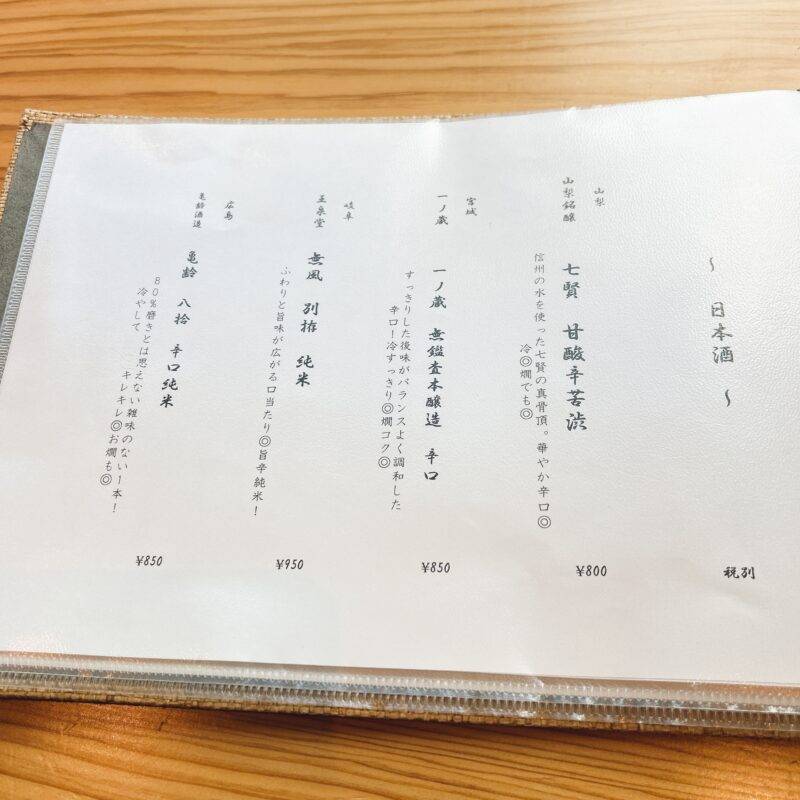 ～ 日本酒 ～
税別
山梨
山梨銘醸
七賢 甘酸辛苦渋
信州の水を使った七賢の真骨頂。華やか辛口◎
冷◎燗でも◎
¥800
宮城
一ノ蔵
一ノ蔵 無鑑査本醸造 辛口
すっきりした後味がバランスよく調和した
辛口！冷すっきり◎燗コク◎
¥850
岐阜
玉泉堂
無風 別拵 純米
ふわりと旨味が広がる口当たり◎旨辛純米！
¥950
広島
亀齢酒造
亀齢 八拾 辛口純米
80%磨きとは思えない雑味のない1本！
冷やして キレキレ◎お燗も◎
¥850